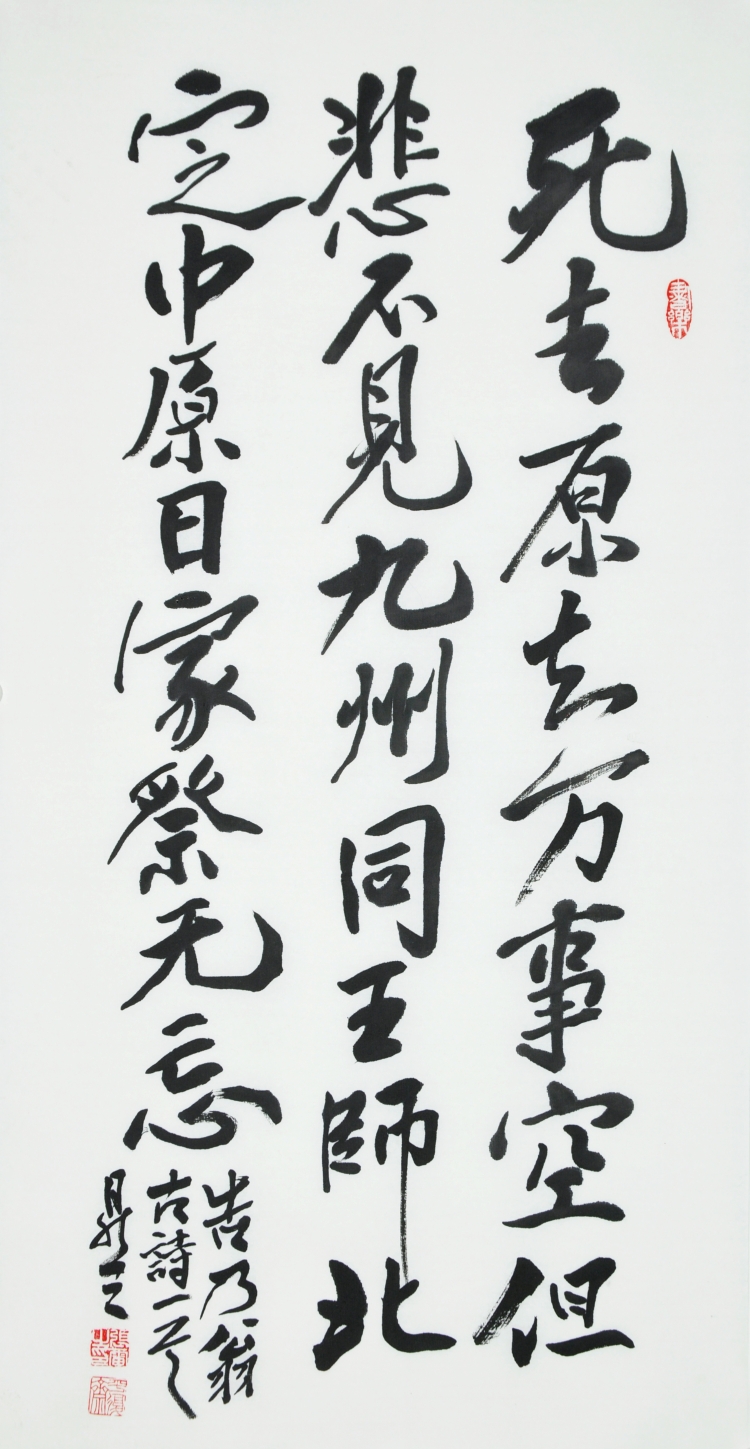 死去原知万事空但
悲不見九州同王師北
定中原日家祭无忘
告乃翁
古詩一首